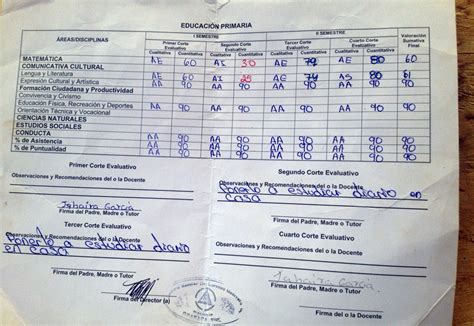 EDUCACIÓN PRIMARIA
I SEMESTRE II SEMESTRE
ÁREAS/DISCIPLINAS Primer Corte Evaluativo Segundo Corte Evaluativo Tercer Corte Evaluativo Cuarto Corte Evaluativo Valoración Sumativa Final
Cualitativo Cuantitativo Cualitativo Cuantitativo Cualitativo Cuantitativo Cualitativo Cuantitativo
MATEMÁTICA AE 60 AI 30 AE 79 AE 80 60
COMUNICATIVA CULTURAL
Lengua y Literatura AE 60 AI 25 AE 74 AS 80 61
Expresión Cultural y Artística AA 90 AA 90 AA 90 AA 90 90
Formación Ciudadana y Productividad
Convivencia y Civismo
Educación Física, Recreación y Deportes AA 90 AA 90 AA 90 AA 90 90
Orientación Técnica y Vocacional AA 90 AA 90 AA 90 AA 90 90
CIENCIAS NATURALES
ESTUDIOS SOCIALES
CONDUCTA AA 90 AA 90 AA 90 AA 90 90
% de Asistencia AA 90 AA 90 AA 90 AA 90 90
% de Puntualidad AA 90 AA 90 AA 90 AA 90 90
Primer Corte Evaluativo
Observaciones y Recomendaciones del o la Docente
García
Firma del Padre, Madre o Tutor
Segundo Corte Evaluativo
Observaciones y Recomendaciones del o la Docente
ponerlo a estudiar diario en
casa
Firma del Padre, Madre o Tutor
Tercer Corte Evaluativo
Observaciones y Recomendaciones del o la Docente
ponerlo a estudiar diario
en casa
Firma del Padre, Madre o Tutor
Cuarto Corte Evaluativo
Observaciones y Recomendaciones del o la Docente
García
Firma del Padre, Madre o Tutor
Firma del Director (a)